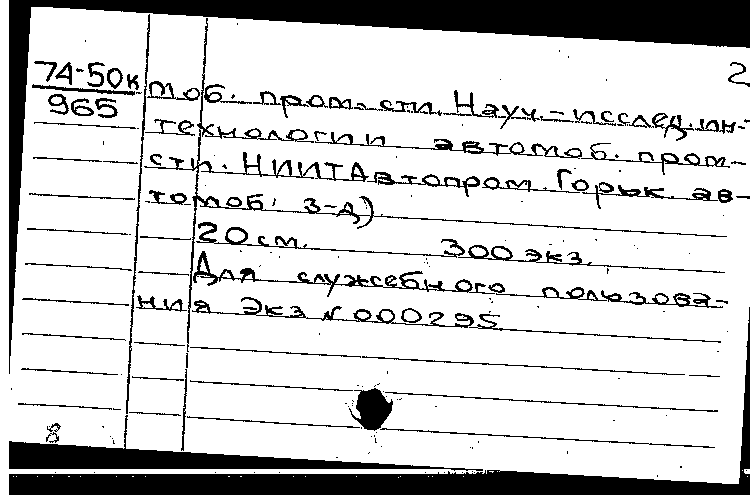 2
74-50к
965
моб. пром-сти. Науч.-исслед. ин-т
технологии автомоб. пром-
сти. НИИТАвтопром. Горьк. ав-
томоб. з-д)
20 см. 300 экз.
Для служебного пользова-
ния Экз № 000295
8